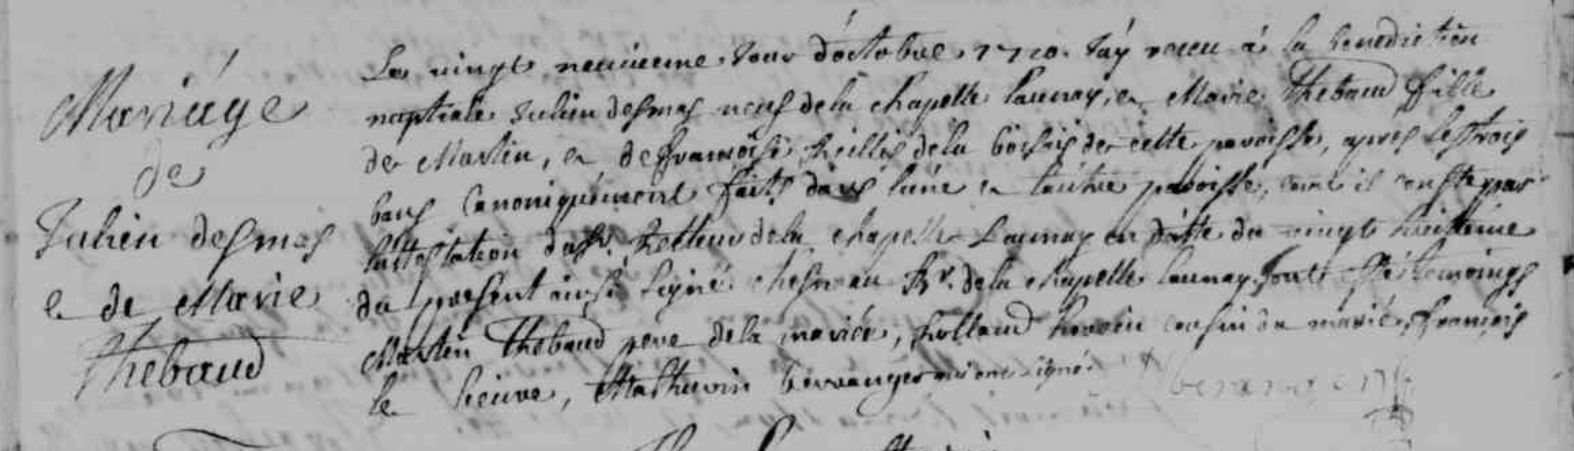 Mariage
de
Julien desmas
e de Marie
Thebaud
Le vingt neuvieme Jour d'octobre 1710. J'ay receu à la benediction
nuptiale Julien desmas neuf de la chapelle launay, e Marie Thebaud fille
de Martin, e de françoise de la de cette paroisse, apres les trois
bans canoniquement faits dans l'une e l'autre paroisse, come il conste par
l'attestation du Sr. Recteur de la chapelle Launay en datte du vingt huictieme
du present ainsi signé chesneau Rr. de la chapelle launay. sont esté temoings
Martin Thebaud pere de la mariée, Rolland cousin du marié, françois
le lieuvre, Mathurin berranger qui ont signé.